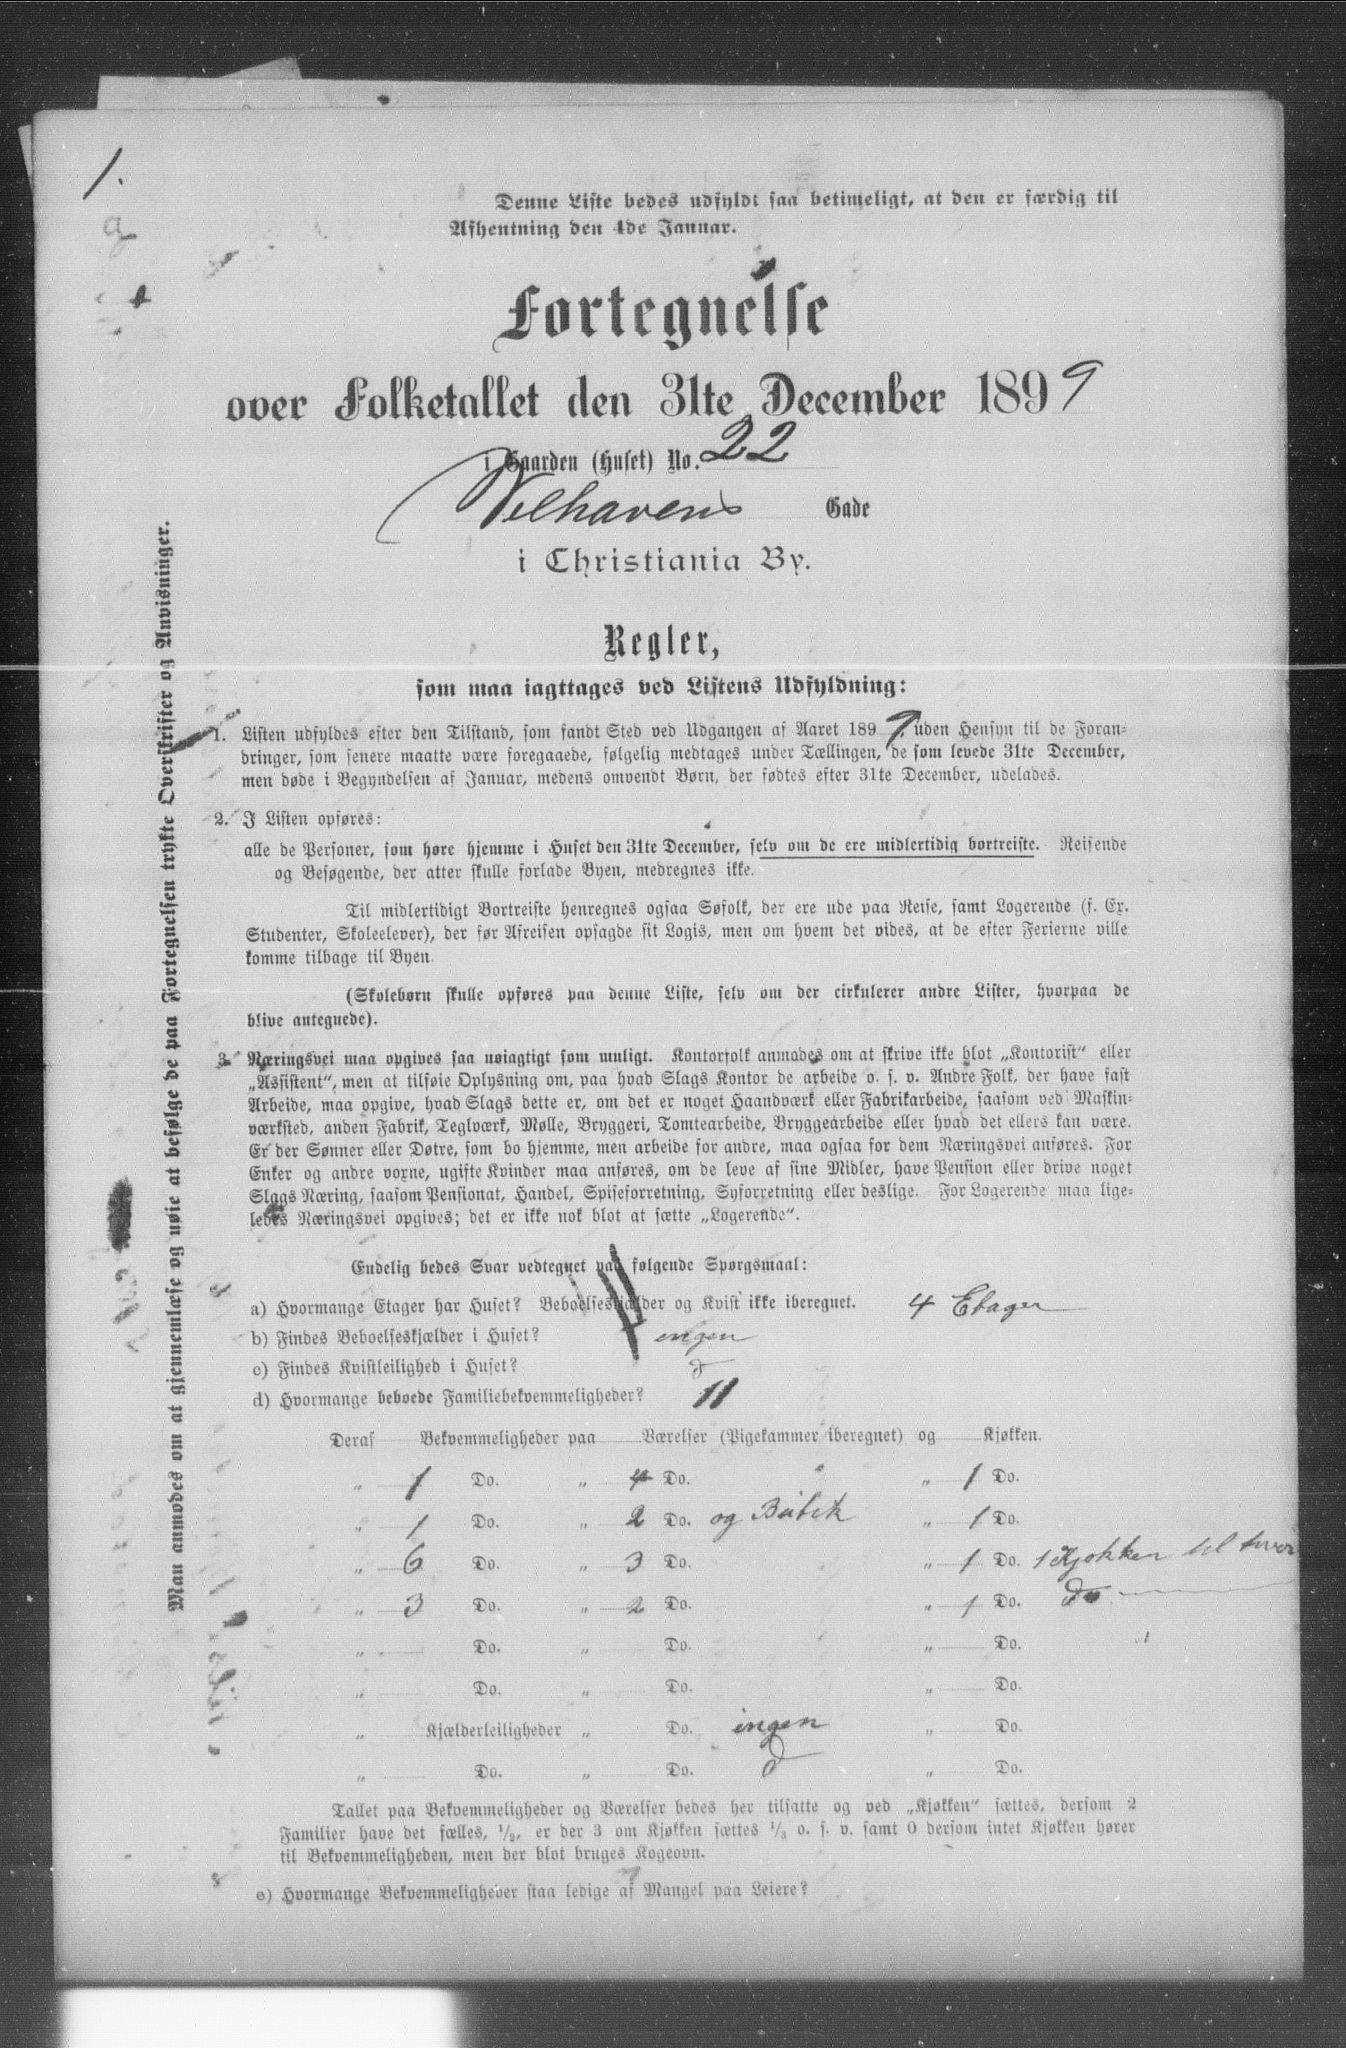 1.
Denne Liste bedes udfyldt saa betimeligt, at den er færdig til
Afhentning den 4de Januar.
Fortegnelse
over Folketallet den 31te December 1899
i Gaarden (Huset) No. 22
Velhavens Gade
i Christiania By.
Regler,
som maa iagttages ved Listens Udfyldning:
1. Listen udfyldes efter den Tilstand, som fandt Sted ved Udgangen af Aaret 1899, uden Hensyn til de Foran-
dringer, som senere maatte være foregaaede, følgelig medtages under Tællingen, de som levede 31te December,
men døde i Begyndelsen af Januar, medens omvendt Børn, der fødtes efter 31te December, udelades.
2. I Listen opføres:
alle de Personer, som høre hjemme i Huset den 31te December, selv om de ere midlertidig bortreiste. Reisende
og Besøgende, der atter skulle forlade Byen, medregnes ikke.
Til midlertidigt Bortreiste henregnes ogsaa Søfolk, der ere ude paa Reise, samt Logerende (f. Ex.
Studenter, Skoleelever), der før Afreisen opsagde sit Logis, men om hvem det vides, at de efter Ferierne ville
komme tilbage til Byen.
(Skolebørn skulle opføres paa denne Liste, selv om der cirkulerer andre Lister, hvorpaa de
blive antegnede).
3. Næringsvei maa opgives saa nøiagtigt som muligt. Kontorfolk anmodes om at skrive ikke blot „Kontorist“ eller
„Assistent“, men at tilføie Oplysning om, paa hvad Slags Kontor de arbeide o. s. v. Andre Folk, der have fast
Arbeide, maa opgive, hvad Slags dette er, om det er noget Haandværk eller Fabrikarbeide, saasom ved Maskin-
værksted, anden Fabrik, Teglværk, Mølle, Bryggeri, Tomtearbeide, Bryggearbeide eller hvad det ellers kan være.
Er der Sønner eller Døtre, som bo hjemme, men arbeide for andre, maa ogsaa for dem Næringsvei anføres. For
Enker og andre voxne, ugifte Kvinder maa anføres, om de leve af sine Midler, have Pension eller drive noget
Slags Næring, saasom Pensionat, Handel, Spiseforretning, Syforretning eller deslige. For Logerende maa lige-
ledes Næringsvei opgives; det er ikke nok blot at sætte „Logerende“.
Endelig bedes Svar vedtegnet paa følgende Spørgsmaal:
a) Hvormange Etager har Huset? Beboelseskjælder og Kvist ikke iberegnet. 4 Etager
b) Findes Beboelseskjælder i Huset? ingen
c) Findes Kvistleilighed i Huset? d
d) Hvormange beboede Familiebekvemmeligheder? 11
Deraf Bekvemmeligheder paa Værelser (Pigekammer iberegnet) og Kjøkken.
„ 1 Do. „ 4 Do. „ 1 Do.
„ 1 Do. „ 2 Do. og „ 1 Do.
„ 6 Do. „ 3 Do. „ 1 Do. 1 Kjøkken til hver
„ 3 Do. „ 2 Do. „ 1 Do. do
„ Do. „ Do. „ Do.
„ Do. „ Do. „ Do.
„ Kjælderleiligheder „ Do. ingen „ Do.
„ Do. „ Do. d „ Do.
Tallet paa Bekvemmeligheder og Værelser bedes her tilsatte og ved „Kjøkken“ sættes, dersom 2
Familier have det fælles, 1/2, er der 3 om Kjøkken sættes 1/3 o. s. v. samt 0 dersom intet Kjøkken hører
til Bekvemmeligheden, men der blot bruges Kogeovn.
e) Hvormange Bekvemmeligheder staa ledige af Mangel paa Leiere?
Man anmodes om at gjennemlæse og nøie at befølge de paa Fortegnelsen trykte Overskrifter og Anvisninger.